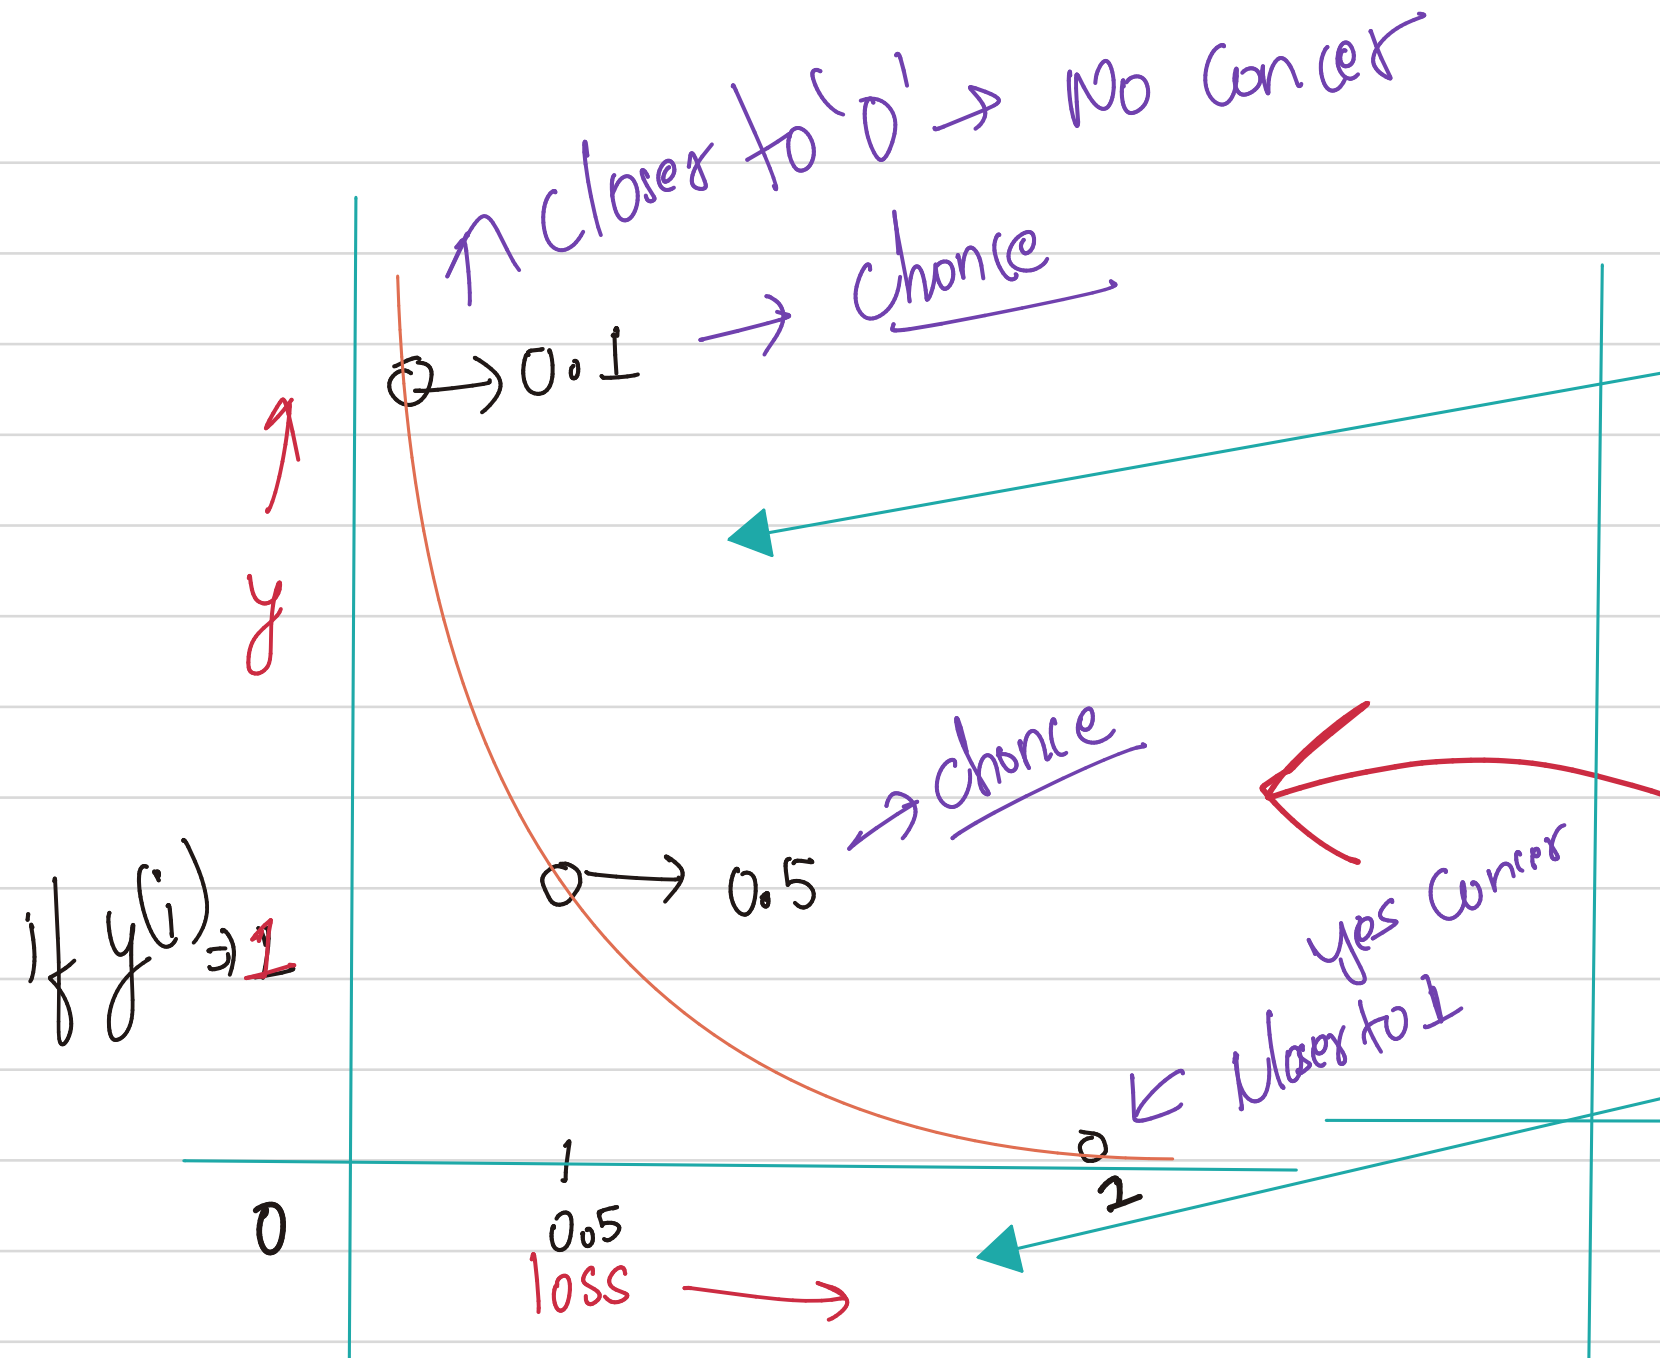 closer to '0' → No Cancer
0.1 → chance
y
→ chance
0.5
if y(i) ⇒ 1
yes Cancer
closer to 1
0
0.5
loss →